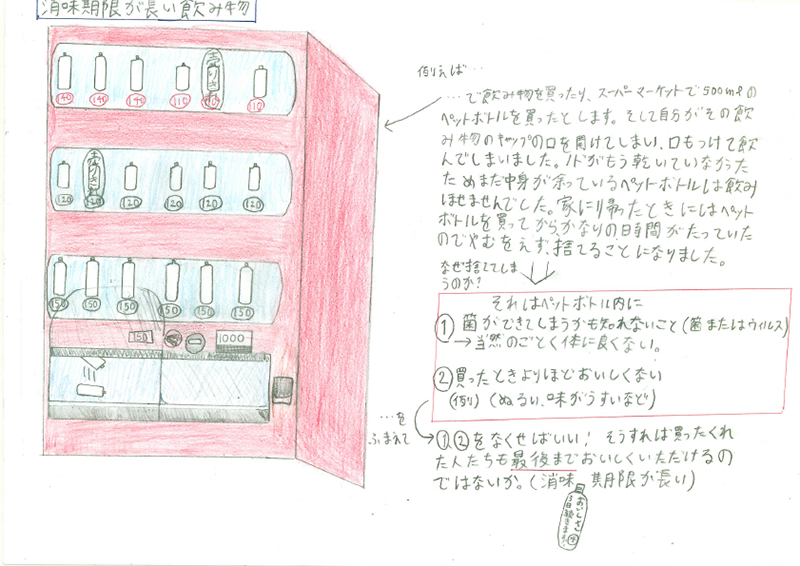 消味期限が長い飲み物
140 140 140 110 110
売りきれ
120 120 120 120 120
売りきれ
150 150 150 150 150 150
150
1000
例えば…
…で飲み物を買ったり、スーパーマーケットで500mlの
ペットボトルを買ったとします。そして自分がその飲
み物のキャップの口を開けてしまい、口もつけて飲
んでしまいました。ノドがもう乾いていなかった
ためまだ中身が余っているペットボトルは飲み
ほせませんでした。家に帰ったときにはペット
ボトルを買ってからかなりの日時間がたっていた
のでやむをえず、捨てることになりました。
なぜ捨ててしま
うのか?
それはペットボトル内に
① 菌ができてしまうかも知れないこと(菌またはウィルス)
→当然のごとく体に良くない。
② 買ったときよりほどおいしくない
(例)(ぬるい、味がうすいなど)
…を
ふまえて
①、②をなくせばいい! そうすれば買ったくれ
た人たちも最後までおいしくいただけるの
ではないか。(消味 期限が長い)
おいしさ
3日続きます!